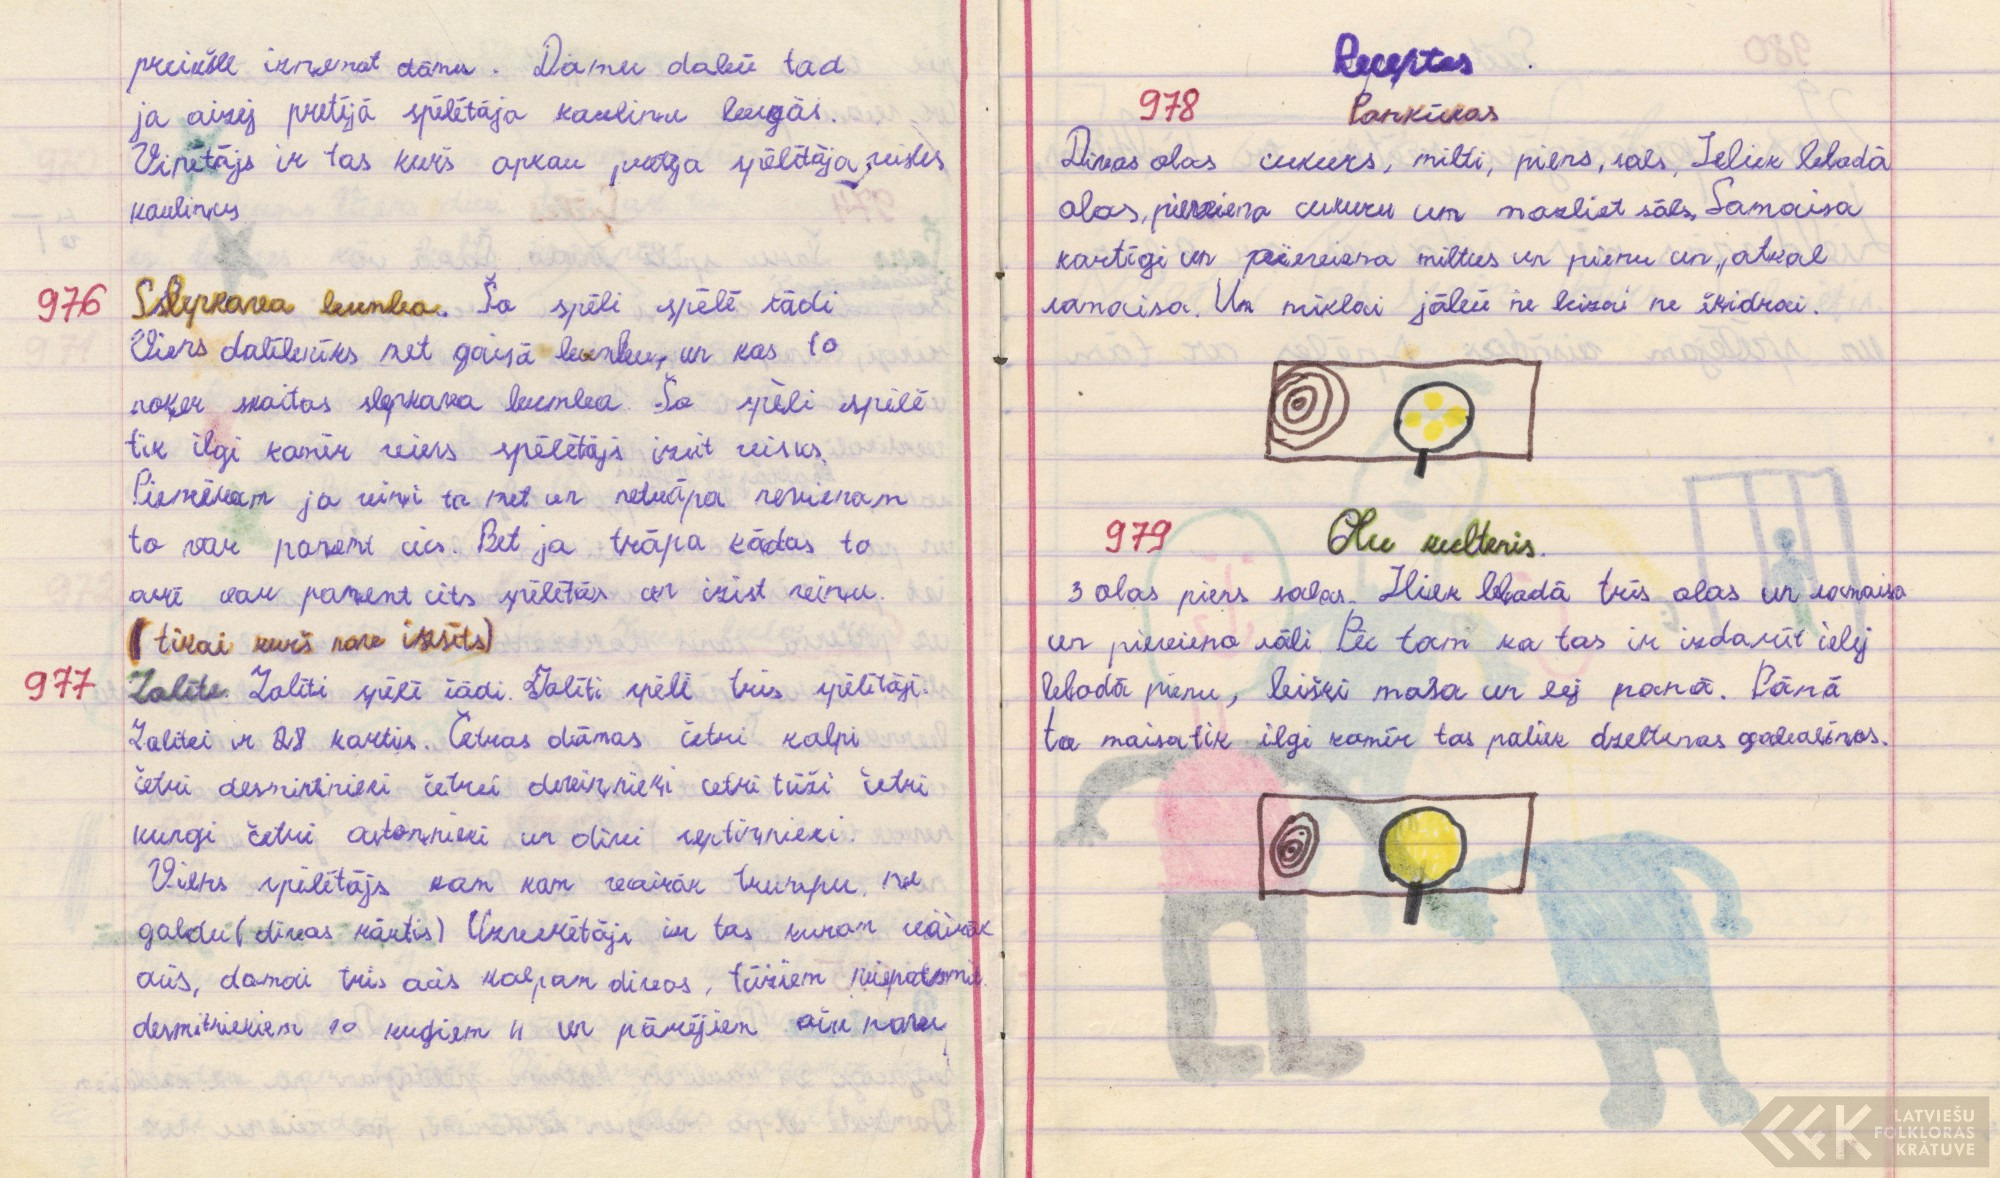 preikšē izņemot dāmu. Dāmu dabū tad
ja aizej pretējā spēlētāja kauliņu beigās.
Vinētājs ir tas kurš apkau pretēja spēlētāja visus
kauliņus
976 Sslepkava bumba. Šo spēli spēlē šādi
Viens dalībnieks met gaisā bumbu, un kas to
noķer skaitas slepkava bumba. Šo spēli spēlē
tik ilgi kamēr viens spēlētājs izsit visus.
Piemēram ja viņi to met un netrāpa nevienam
to var paņemt cits. Bet ja trāpa kādas to
arī var paņemt cits spēlētās un izist viņu.
(tikai kurš nava izsits)
977 Zolīte. Zolīti spēlē šādi. Zolīti spēlē trīs spēlētāji.
Zolītei ir 28 kartiis. Četras dāmas četri kalpi
četri desmitnieki četrei deviņnieki cetri tūži četri
kungi četri astoņnieki un divi septiņnieki.
Viens spēlētājs kam kam vairāk trumpu. ņe
galdu (divas kārtis) Uzvarētājs ir tas kuram vairāk
acis, damai trīs acis kalpam divas, tūziem vienpadsmit
desmitniekiem 10 kugiem 4 un pārējiem aiu nava
Receptes
978 Pankūkas
Divas olas cukurs, milti, piens, sāls, Ieliek bļodā
olas, pievieno cukuru un nazliet sāls, Samaisa
kartīgi un pievieno miltus un pienu un, atkal
samaisa. Un mīklai jābū ne bizai ne šķidrai.
979 Olu kulteris.
3 olas piens salas. Iliek bļodā trīs olas un samaisa
un pievieno sāli. Pēc tam ka tas ir izdarīt ielej
bļodā pienu, biški maisa un lej panā. Pānā
to maisa tik ilgi kamēr tas paliek dzeltenas gabaliņos.
LATVIEŠU
FOLKLORAS
KRĀTUVE